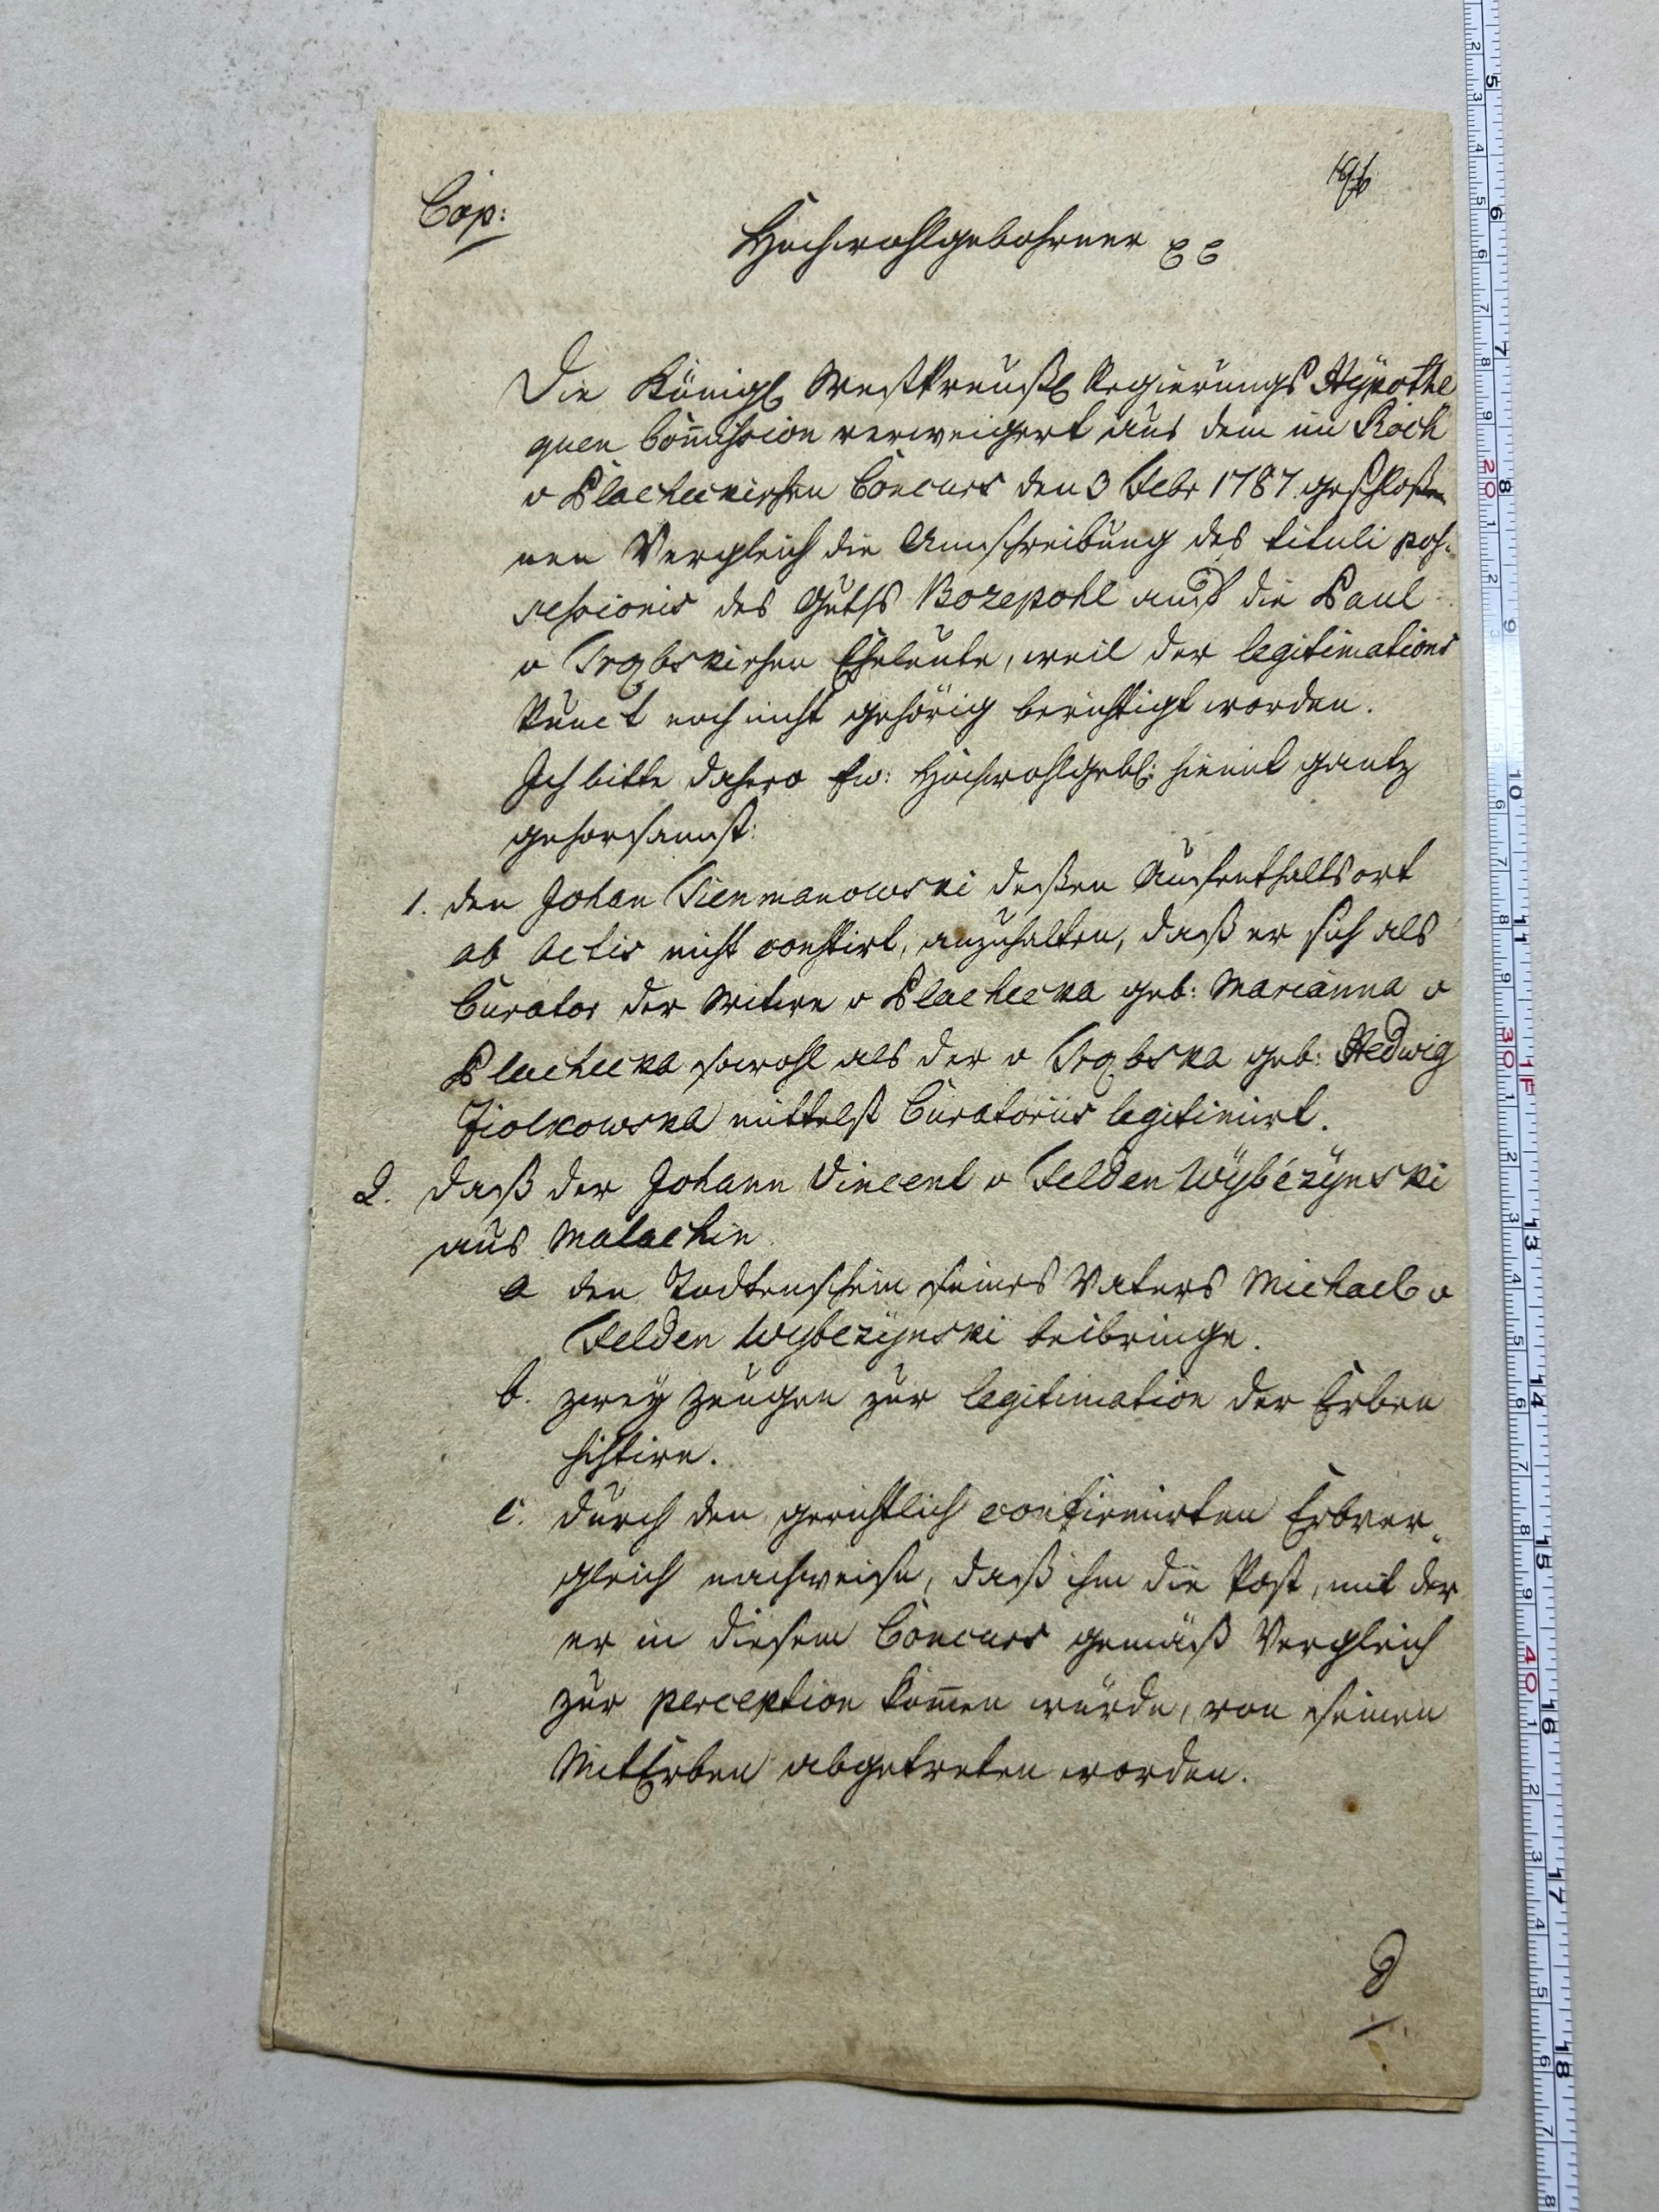 Cop:
Hochwohlgebohrner
Die Königl Westpreußl Regierungs Hÿpothe
quen Com̄ission verweigert aus dem im Roch
v Placheckischen Concurs den 3 Febr 1787. geschloße
nen Vergleich die Umschreibung des tituli pos-
sessionis des Guths Bozepohl auf die Paul
v Trąbskischen Eheleute, weil der legitimations
Punct noch nicht gehörig berichtigt worden.
Ich bitte dahero Ew: Hochwohlgebl: hiemit gantz
gehorsamst:
1. den Johan deßen Aufenthaltsort
ab Actis nicht constirt, anzuhalten, daß er sich als
Curator der Witwe v Plachecka geb: Marianna v
Plachecka sowohl als der v Trąbska geb: Hedwig
Ziolkowska mittelst Curatoriis legitimirt.
2. daß der Johann Vincent v Felden Wÿbczÿnski
aus Malachin
a den Todtenschein seines Vaters Michael v
Felden Wybczÿnski beibringe.
b. zweÿ Zeugen zur legitimation der Erben
sistire.
c. durch den gerichtlich confirmirten Erbver-
gleich nachweise, daß ihm die Post, mit der
er in diesem Concurs gemäß Vergleich
zur perception kom̄en würde, von seinen
MitErben abgetreten worden.